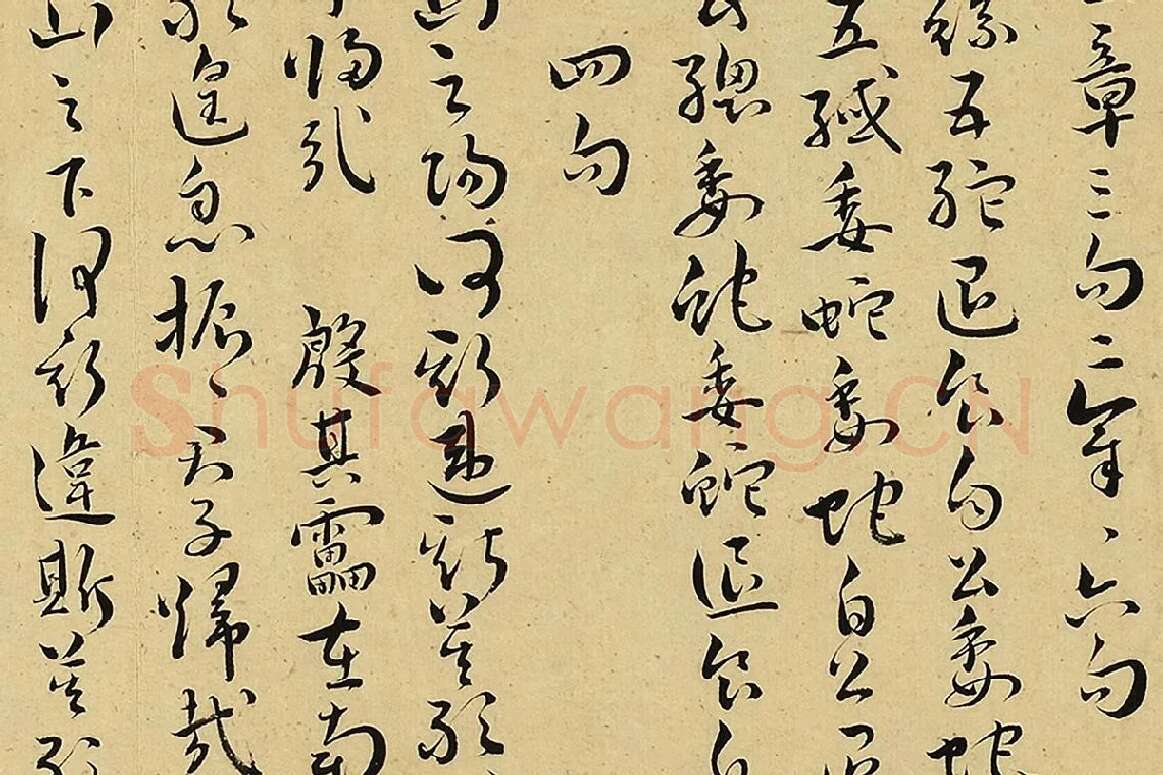 一章三句二章〻六句
絲五紽退食自公委蛇
五緎委蛇委蛇自公退
總委蛇委蛇退食自
四句
山之陽何斯違斯莫敢
歸哉 殷其靁在南
敢遑息振〻君子歸哉
山之下何斯違斯莫敢
Shufawang.CN